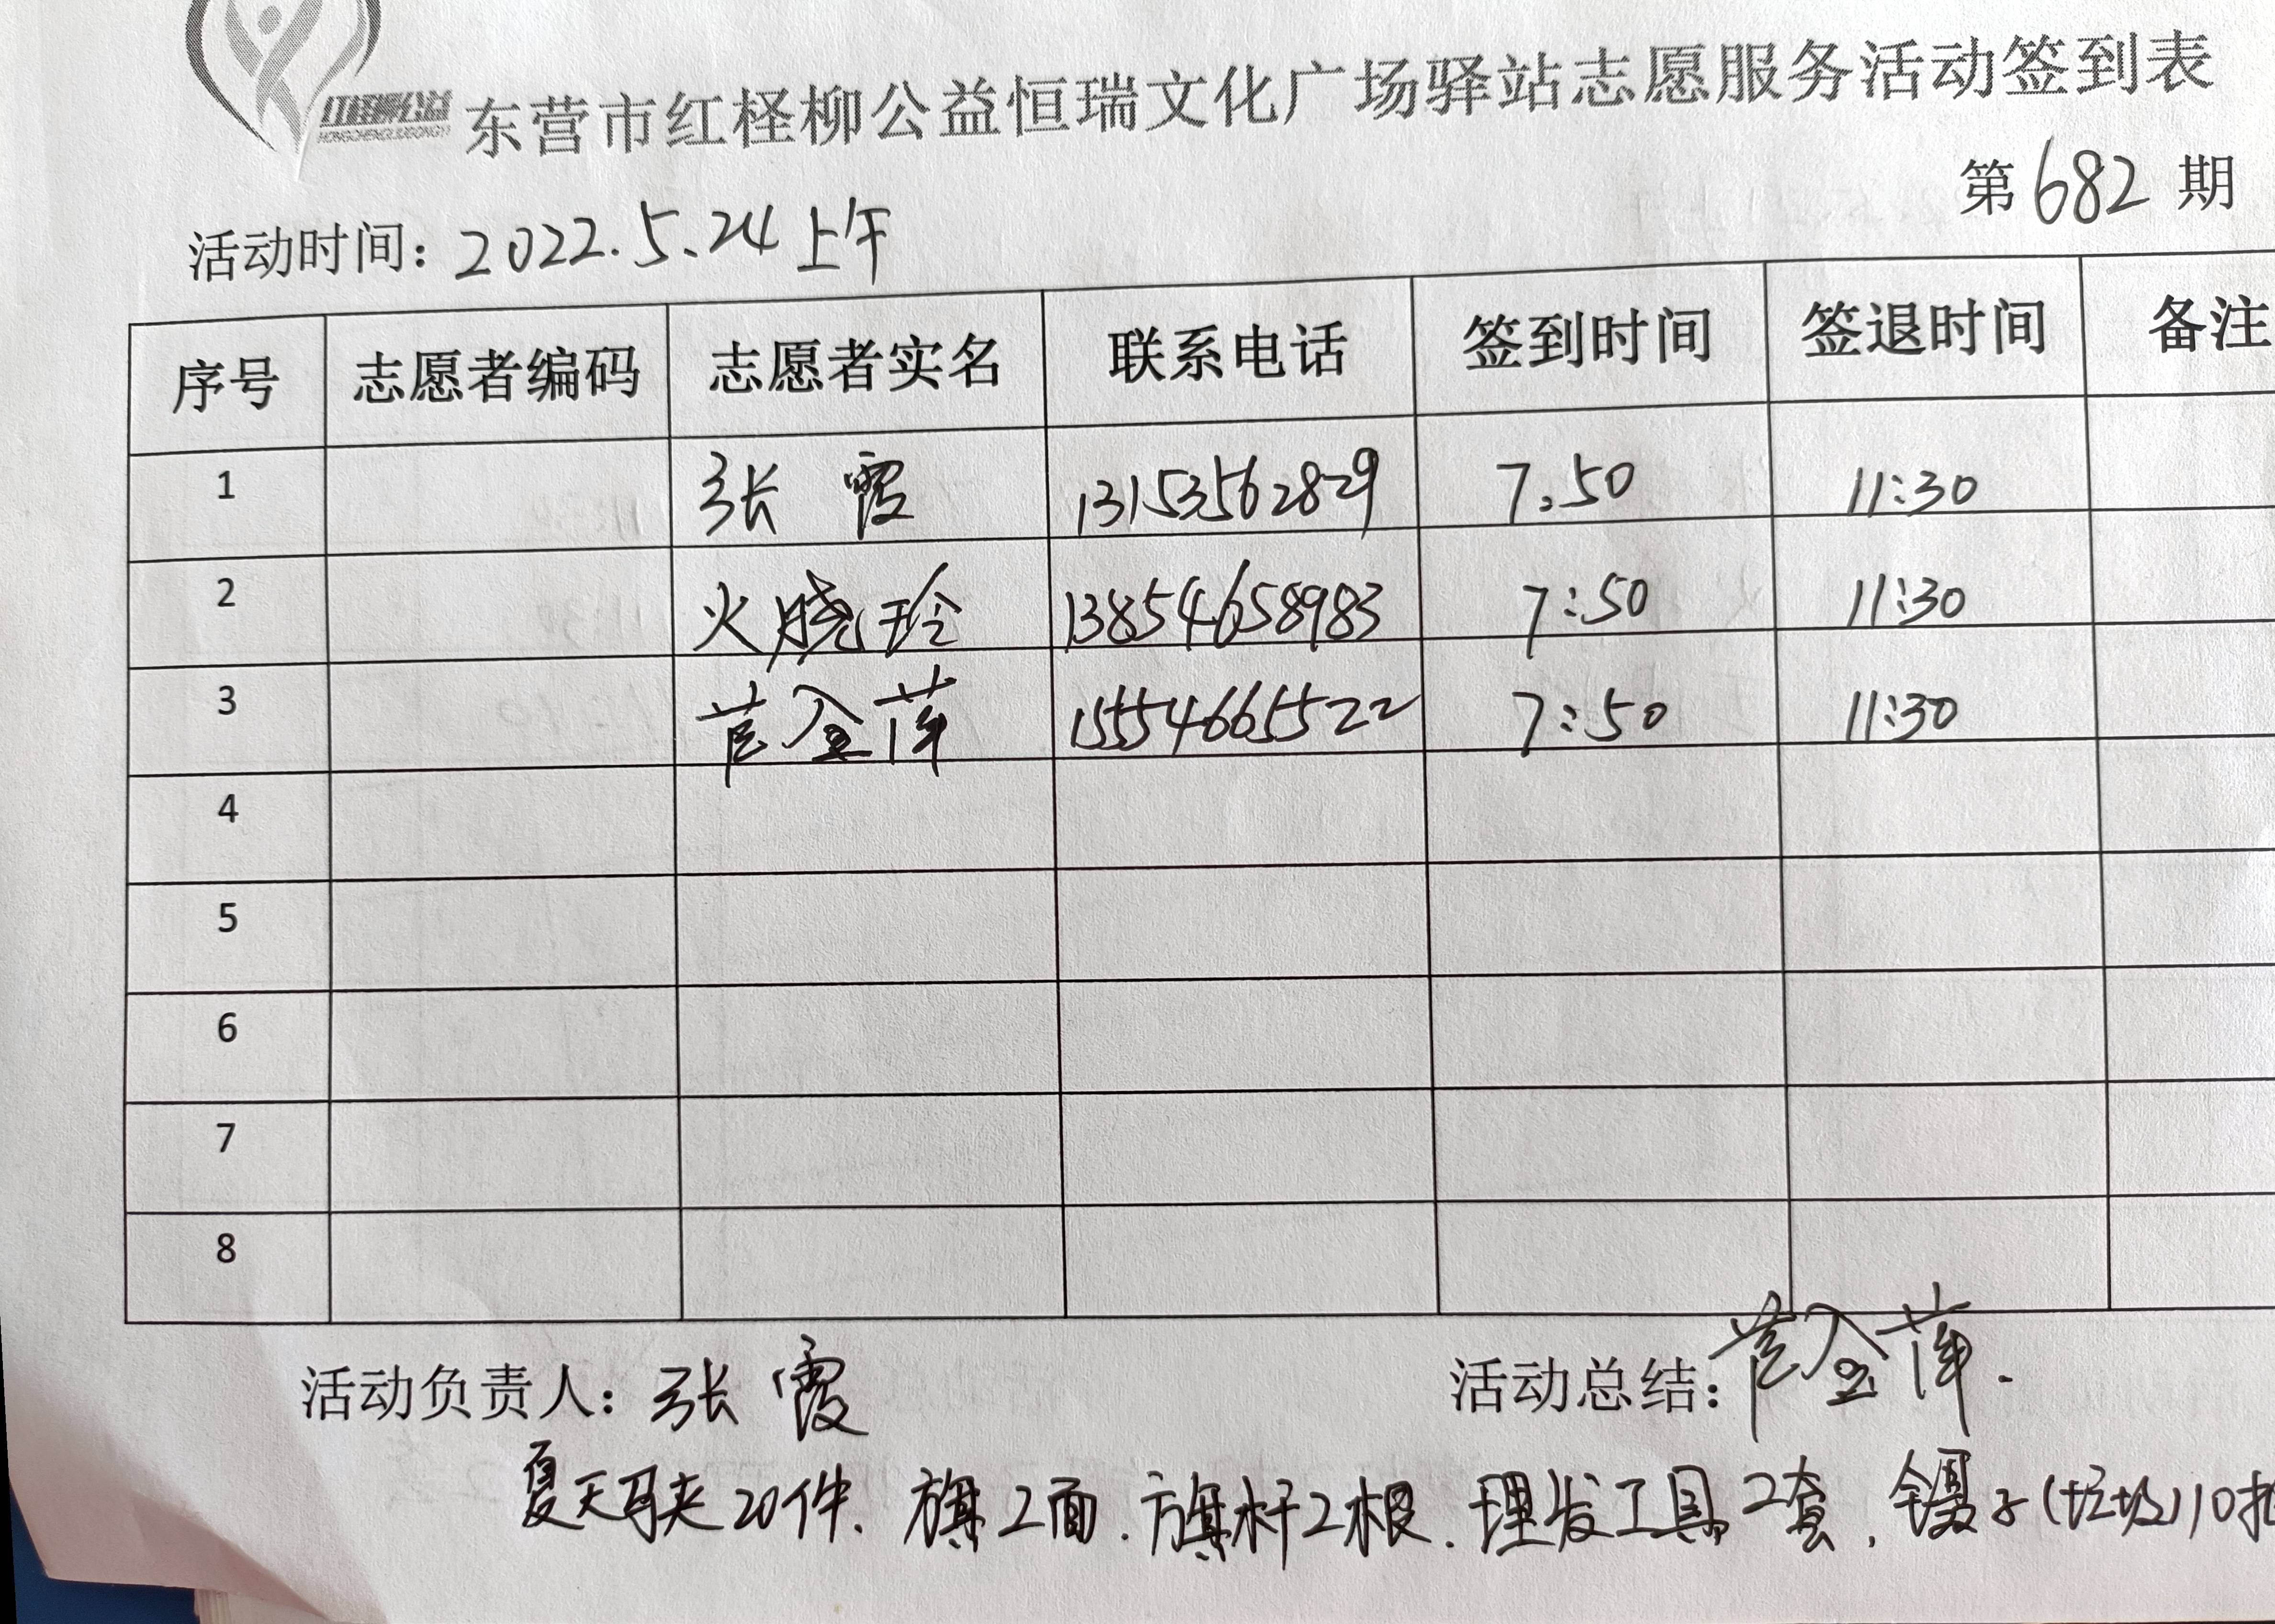 红柽柳公益
HONGCHENGLIUGONGYI
东营市红柽柳公益恒瑞文化广场驿站志愿服务活动签到表
第682期
活动时间：2022.5.24上午
序号 志愿者编码 志愿者实名 联系电话 签到时间 签退时间 备注
1 张霞 13153562829 7.50 11:30
2 火晓玲 13854658983 7:50 11:30
3 苣金萍 15554665522 7:50 11:30
4
5
6
7
8
活动负责人：张霞 活动总结：苣金萍.
夏天马夹20件、旗2面.旗杆2根.理发工具2套,镊子(垃圾)10把